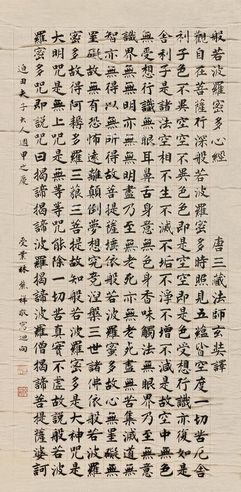 般若波羅蜜多心經 唐三藏法師玄奘譯
觀自在菩薩行深般若波羅蜜多時照見五蘊皆空度一切苦厄舍
利子色不異空空不異色色即是空空即是色受想行識亦復如是
舍利子是諸法空相不生不滅不垢不淨不增不減是故空中無色
無受想行識無眼耳鼻舌身意無色聲香味觸法無眼界乃至無意
識界無無明亦無無明盡乃至無老死亦無老死盡無苦集滅道無
智亦無得以無所得故菩提薩埵依般若波羅蜜多故心無罣礙無
罣礙故無有恐怖遠離顛倒夢想究竟涅槃三世諸佛依般若波羅
蜜多故得阿耨多羅三藐三菩提故知般若波羅蜜多是大神咒是
大明咒是無上咒是無等等咒能除一切苦真實不虛故說般若波
羅蜜多咒即說咒曰揭諦揭諦波羅揭諦波羅僧揭諦菩提薩婆訶
迫田夫子大人週甲之慶 受業林熊祥敬寫迴向